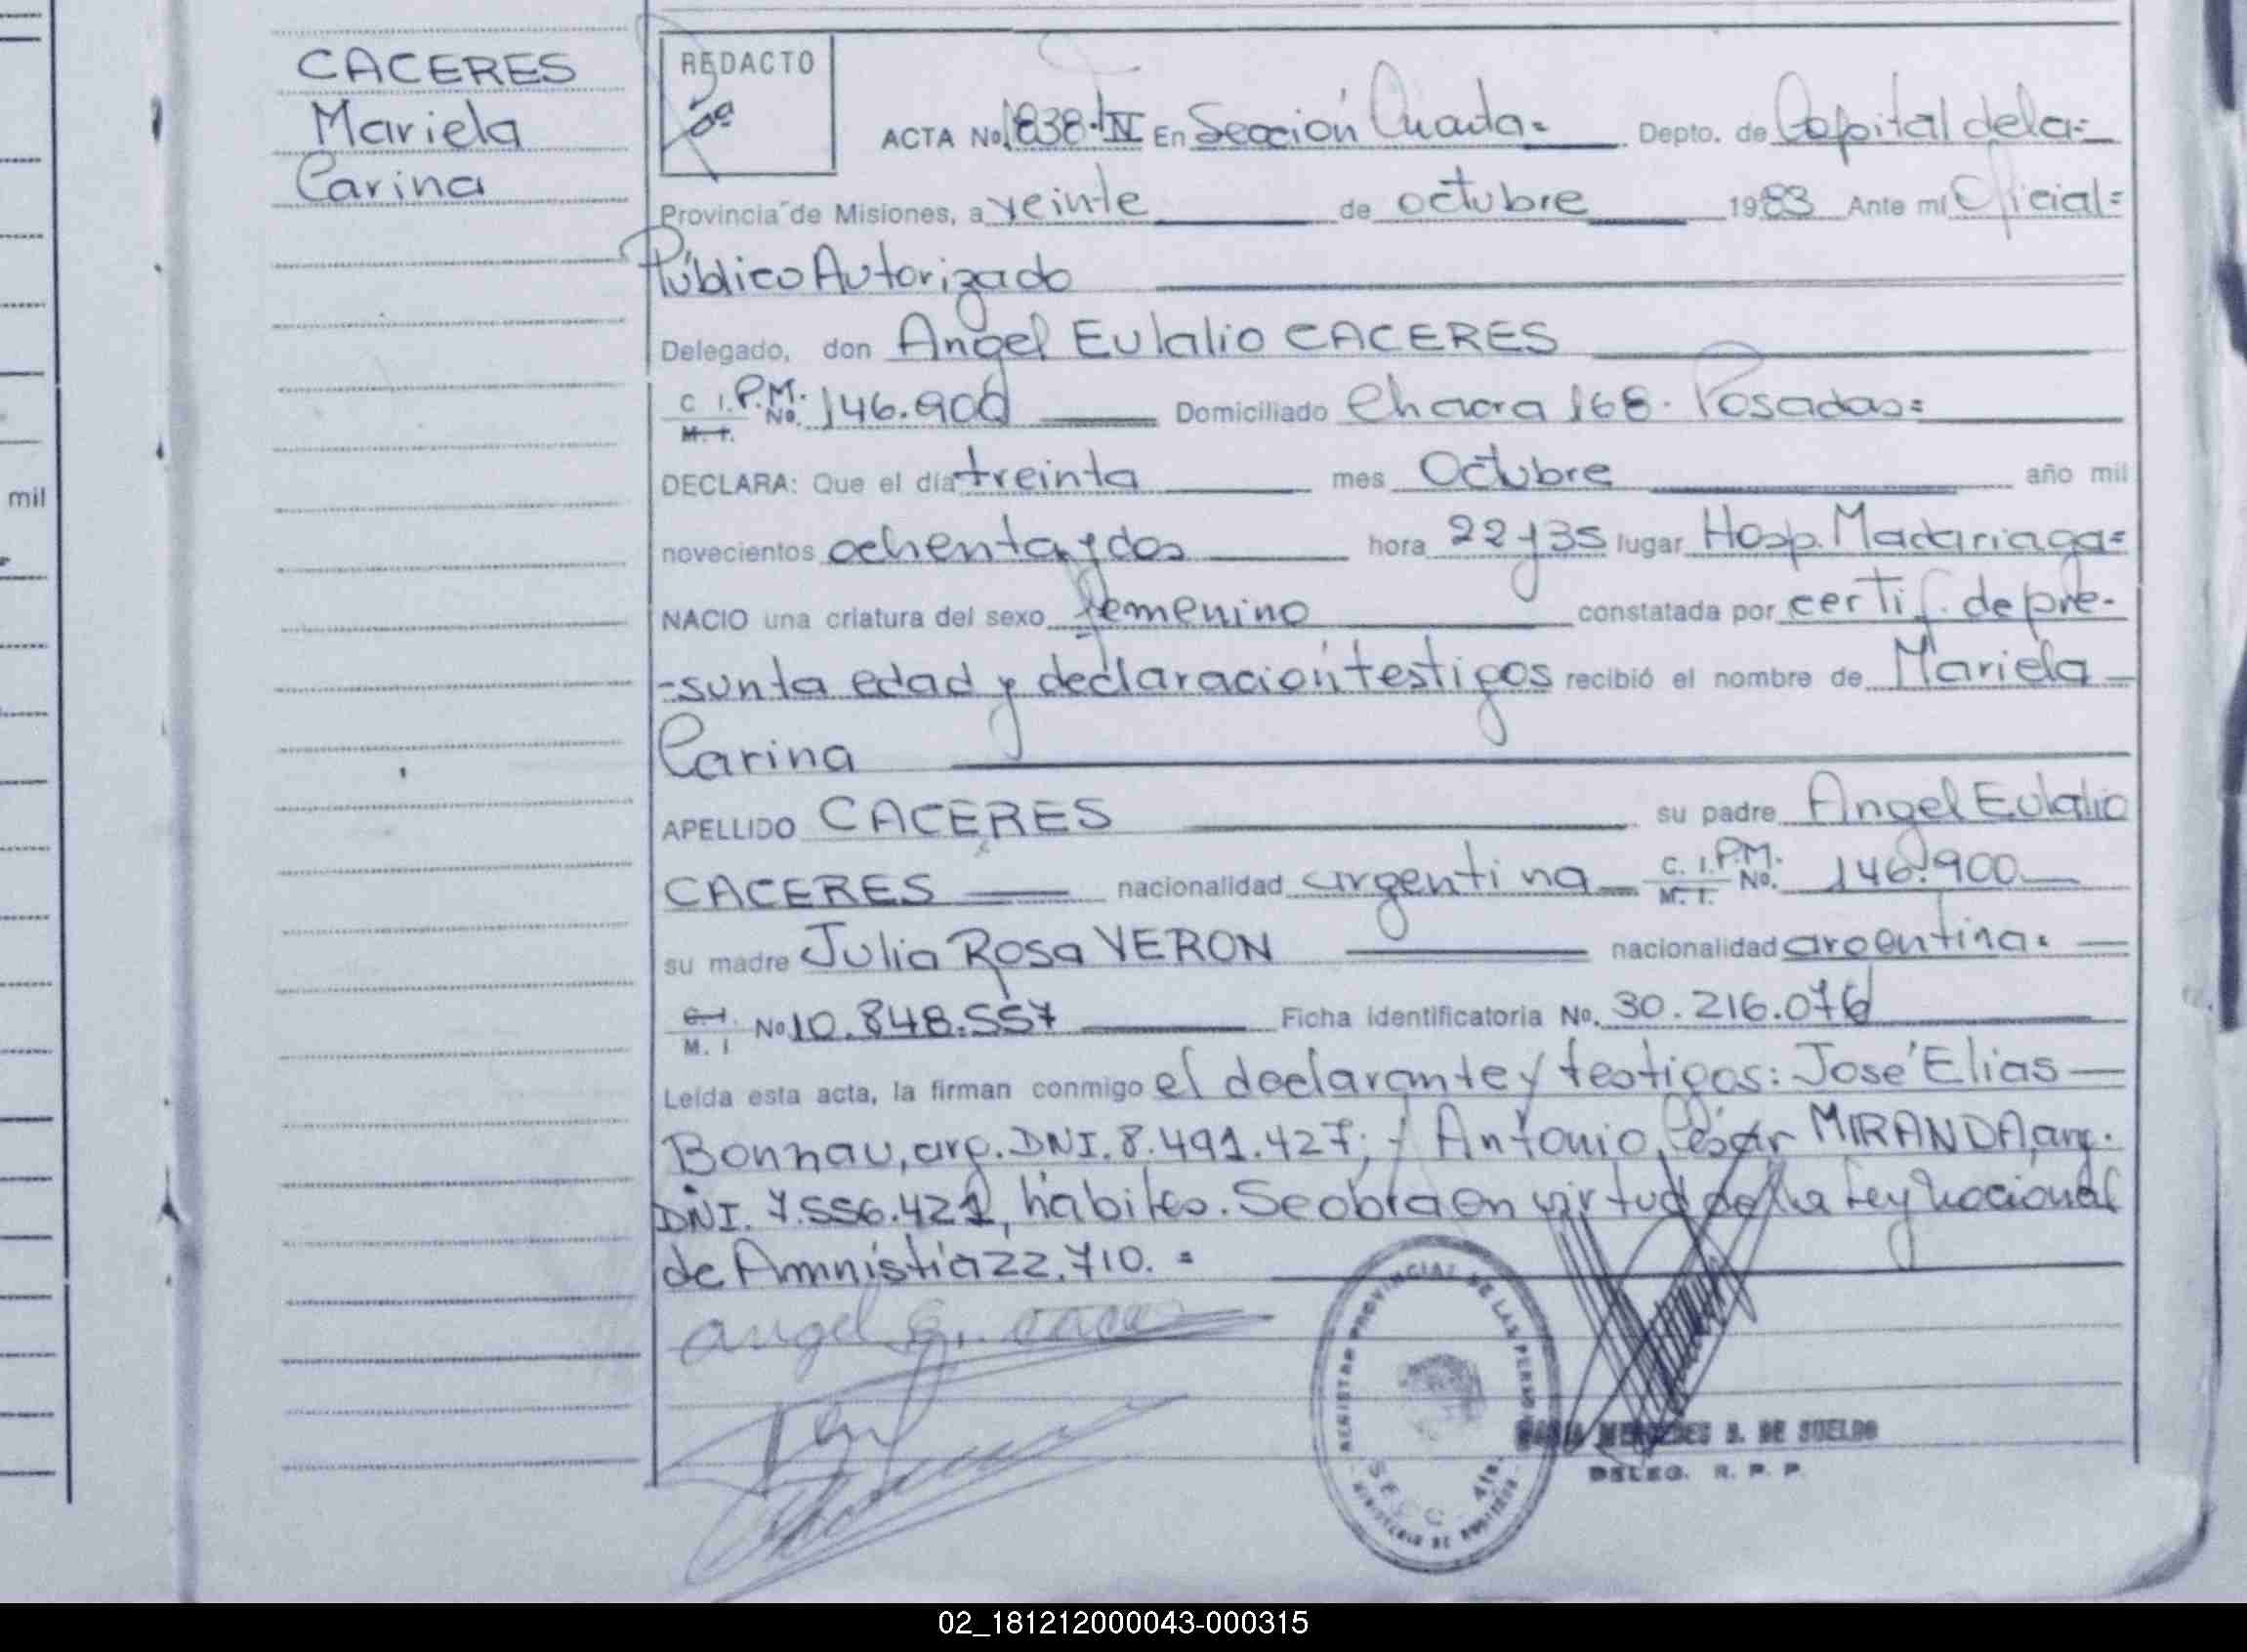 CACERES
Mariela
Carina
REDACTO
ACTA No. 1838-IV En Sección Cuarta= Depto. de Capital de la=
Provincia de Misiones, a veinte de octubre 1983 Ante mí Oficial=
Público Autorizado
Delegado, don Angel Eulalio CACERES
C. I. P.M. No. 146.900 Domiciliado Chacra 168. Posadas=
M. I.
DECLARA: Que el día treinta mes Octubre año mil
novecientos ochenta y dos hora 22 y 35 lugar Hosp. Madariaga=
NACIO una criatura del sexo femenino constatada por certif. de pre-
-sunta edad y declaración testigos recibió el nombre de Mariela
Carina
APELLIDO CACERES su padre Angel Eulalio
CACERES nacionalidad argentina C. I. P.M. No. 146.900
M. I.
su madre Julia Rosa VERON nacionalidad argentina.
C. I.
M. I No 10.848.557 Ficha identificatoria No. 30.216.076
Leída esta acta, la firman conmigo el declarante y testigos: José Elias
Bonnau, arg. DNI. 8.491.427; y Antonio César MIRANDA, arg.
DNI. 7.556.421, hábiles. Se obra en virtud de la Ley Nacional
de Amnistía 22.710. =
angel E.
REGISTRO PROVINCIAL DE LAS PERSONAS
SECC. 4ta.
MINISTERIO DE GOBIERNO
MARIA MERCEDES B. DE SUELDO
DELEG. R. P. P
mil
02_181212000043-000315